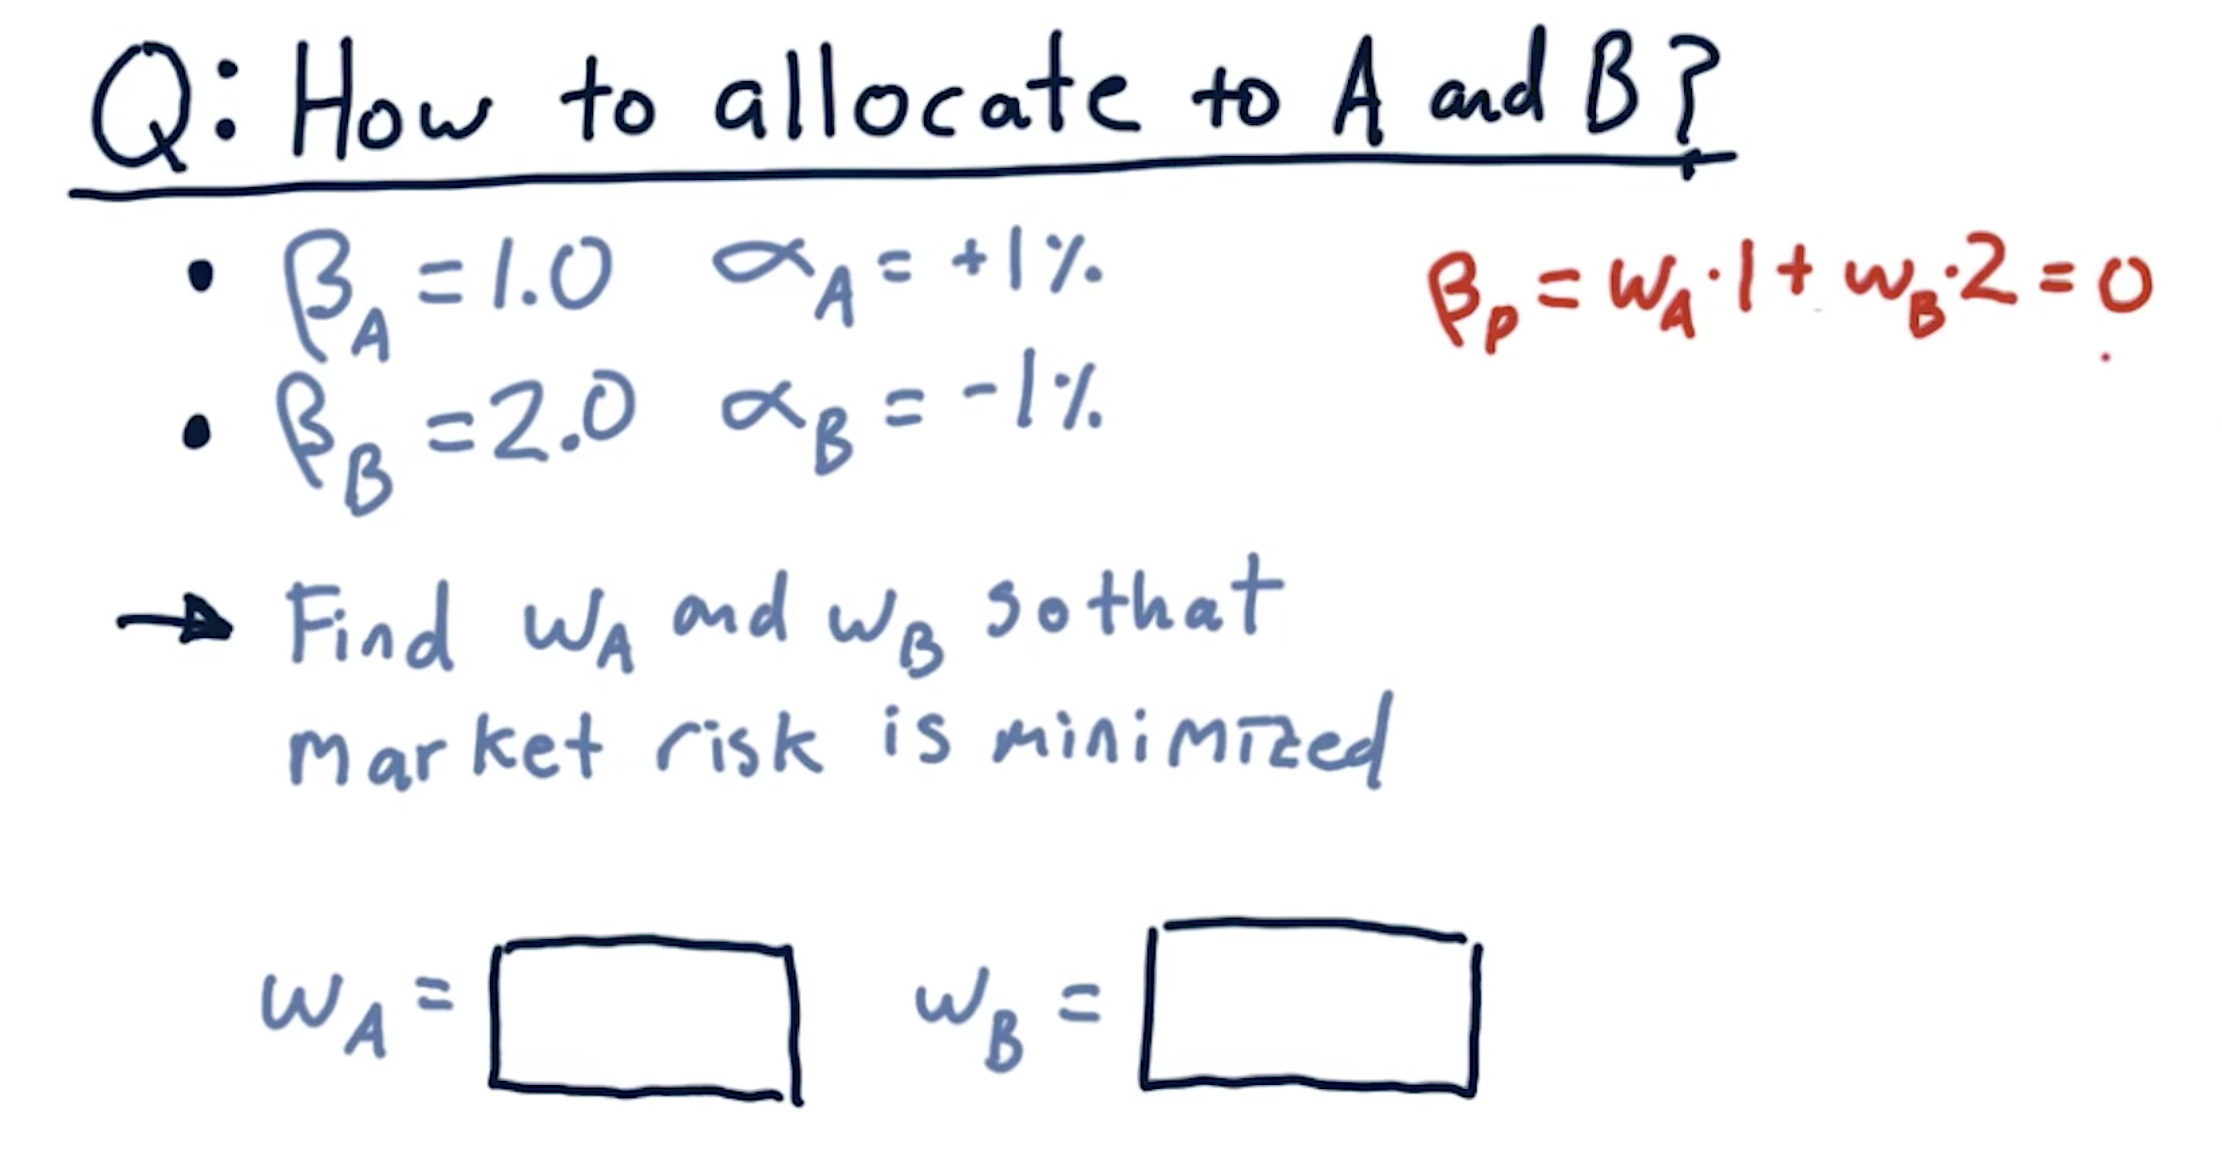 Q: How to allocate to A and B?
• β_A = 1.0 α_A = +1%
β_p = w_A · 1 + w_B · 2 = 0
• β_B = 2.0 α_B = -1%
→ Find w_A and w_B so that
market risk is minimized
w_A = w_B =